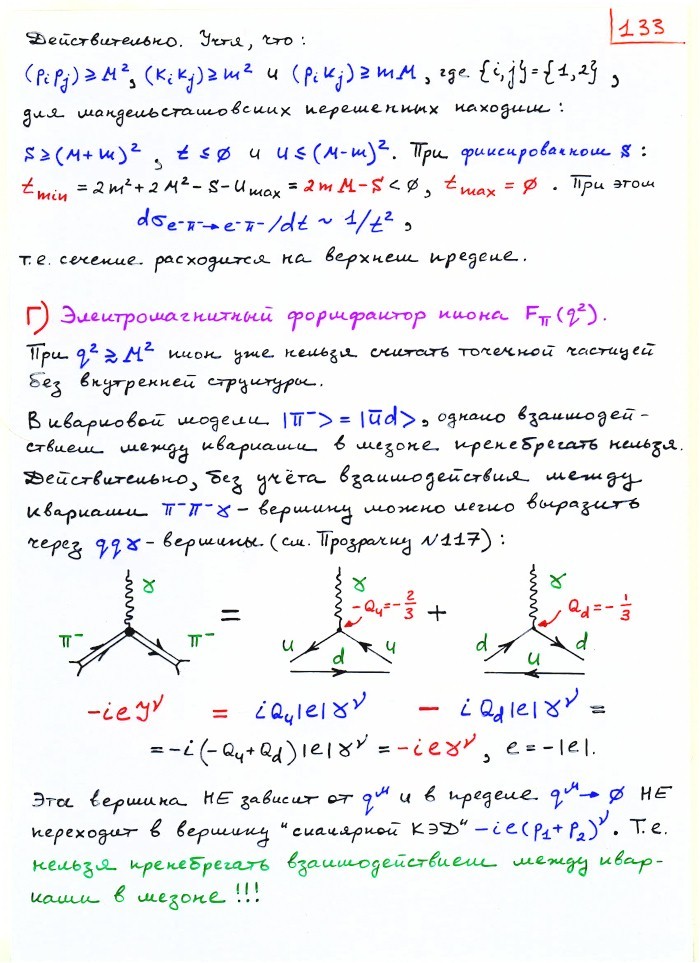 133
Действительно. Учтя, что:
(pᵢpⱼ) ≥ M², (kᵢkⱼ) ≥ m² и (pᵢkⱼ) ≥ mM, где {i,j} = {1,2},
для мандельстамовских переменных находим:
s ≥ (M+m)², t ≤ 0 и u ≤ (M-m)². При фиксированном s:
t_min = 2m² + 2M² - s - u_max = 2mM - s < 0, t_max = 0. При этом
dσ_{e⁻π⁻→e⁻π⁻}/dt ~ 1/t²,
т.е. сечение расходится на верхнем пределе.
Г) Электромагнитный формфактор пиона F_π(q²).
При q² ≳ M² пион уже нельзя считать точечной частицей
без внутренней структуры.
В кварковой модели |π⁻> = |ūd>, однако взаимодей-
ствием между кварками в мезоне пренебрегать нельзя.
Действительно, без учёта взаимодействия между
кварками π⁻π⁻γ - вершину можно легко выразить
через qqγ - вершины (см. Прозрачку №117):
γ γ γ
-Q_u = -2/3 Q_d = -1/3
π⁻ π⁻ = u d u + d u d
-ieγ^ν = iQ_u|e|γ^ν - iQ_d|e|γ^ν =
= -i(-Q_u + Q_d)|e|γ^ν = -ieγ^ν, e = -|e|.
Эта вершина НЕ зависит от q^μ и в пределе q^μ → 0 НЕ
переходит в вершину "скалярной КЭД" -ie(p₁+p₂)^ν. Т.е.
нельзя пренебрегать взаимодействием между квар-
ками в мезоне!!!